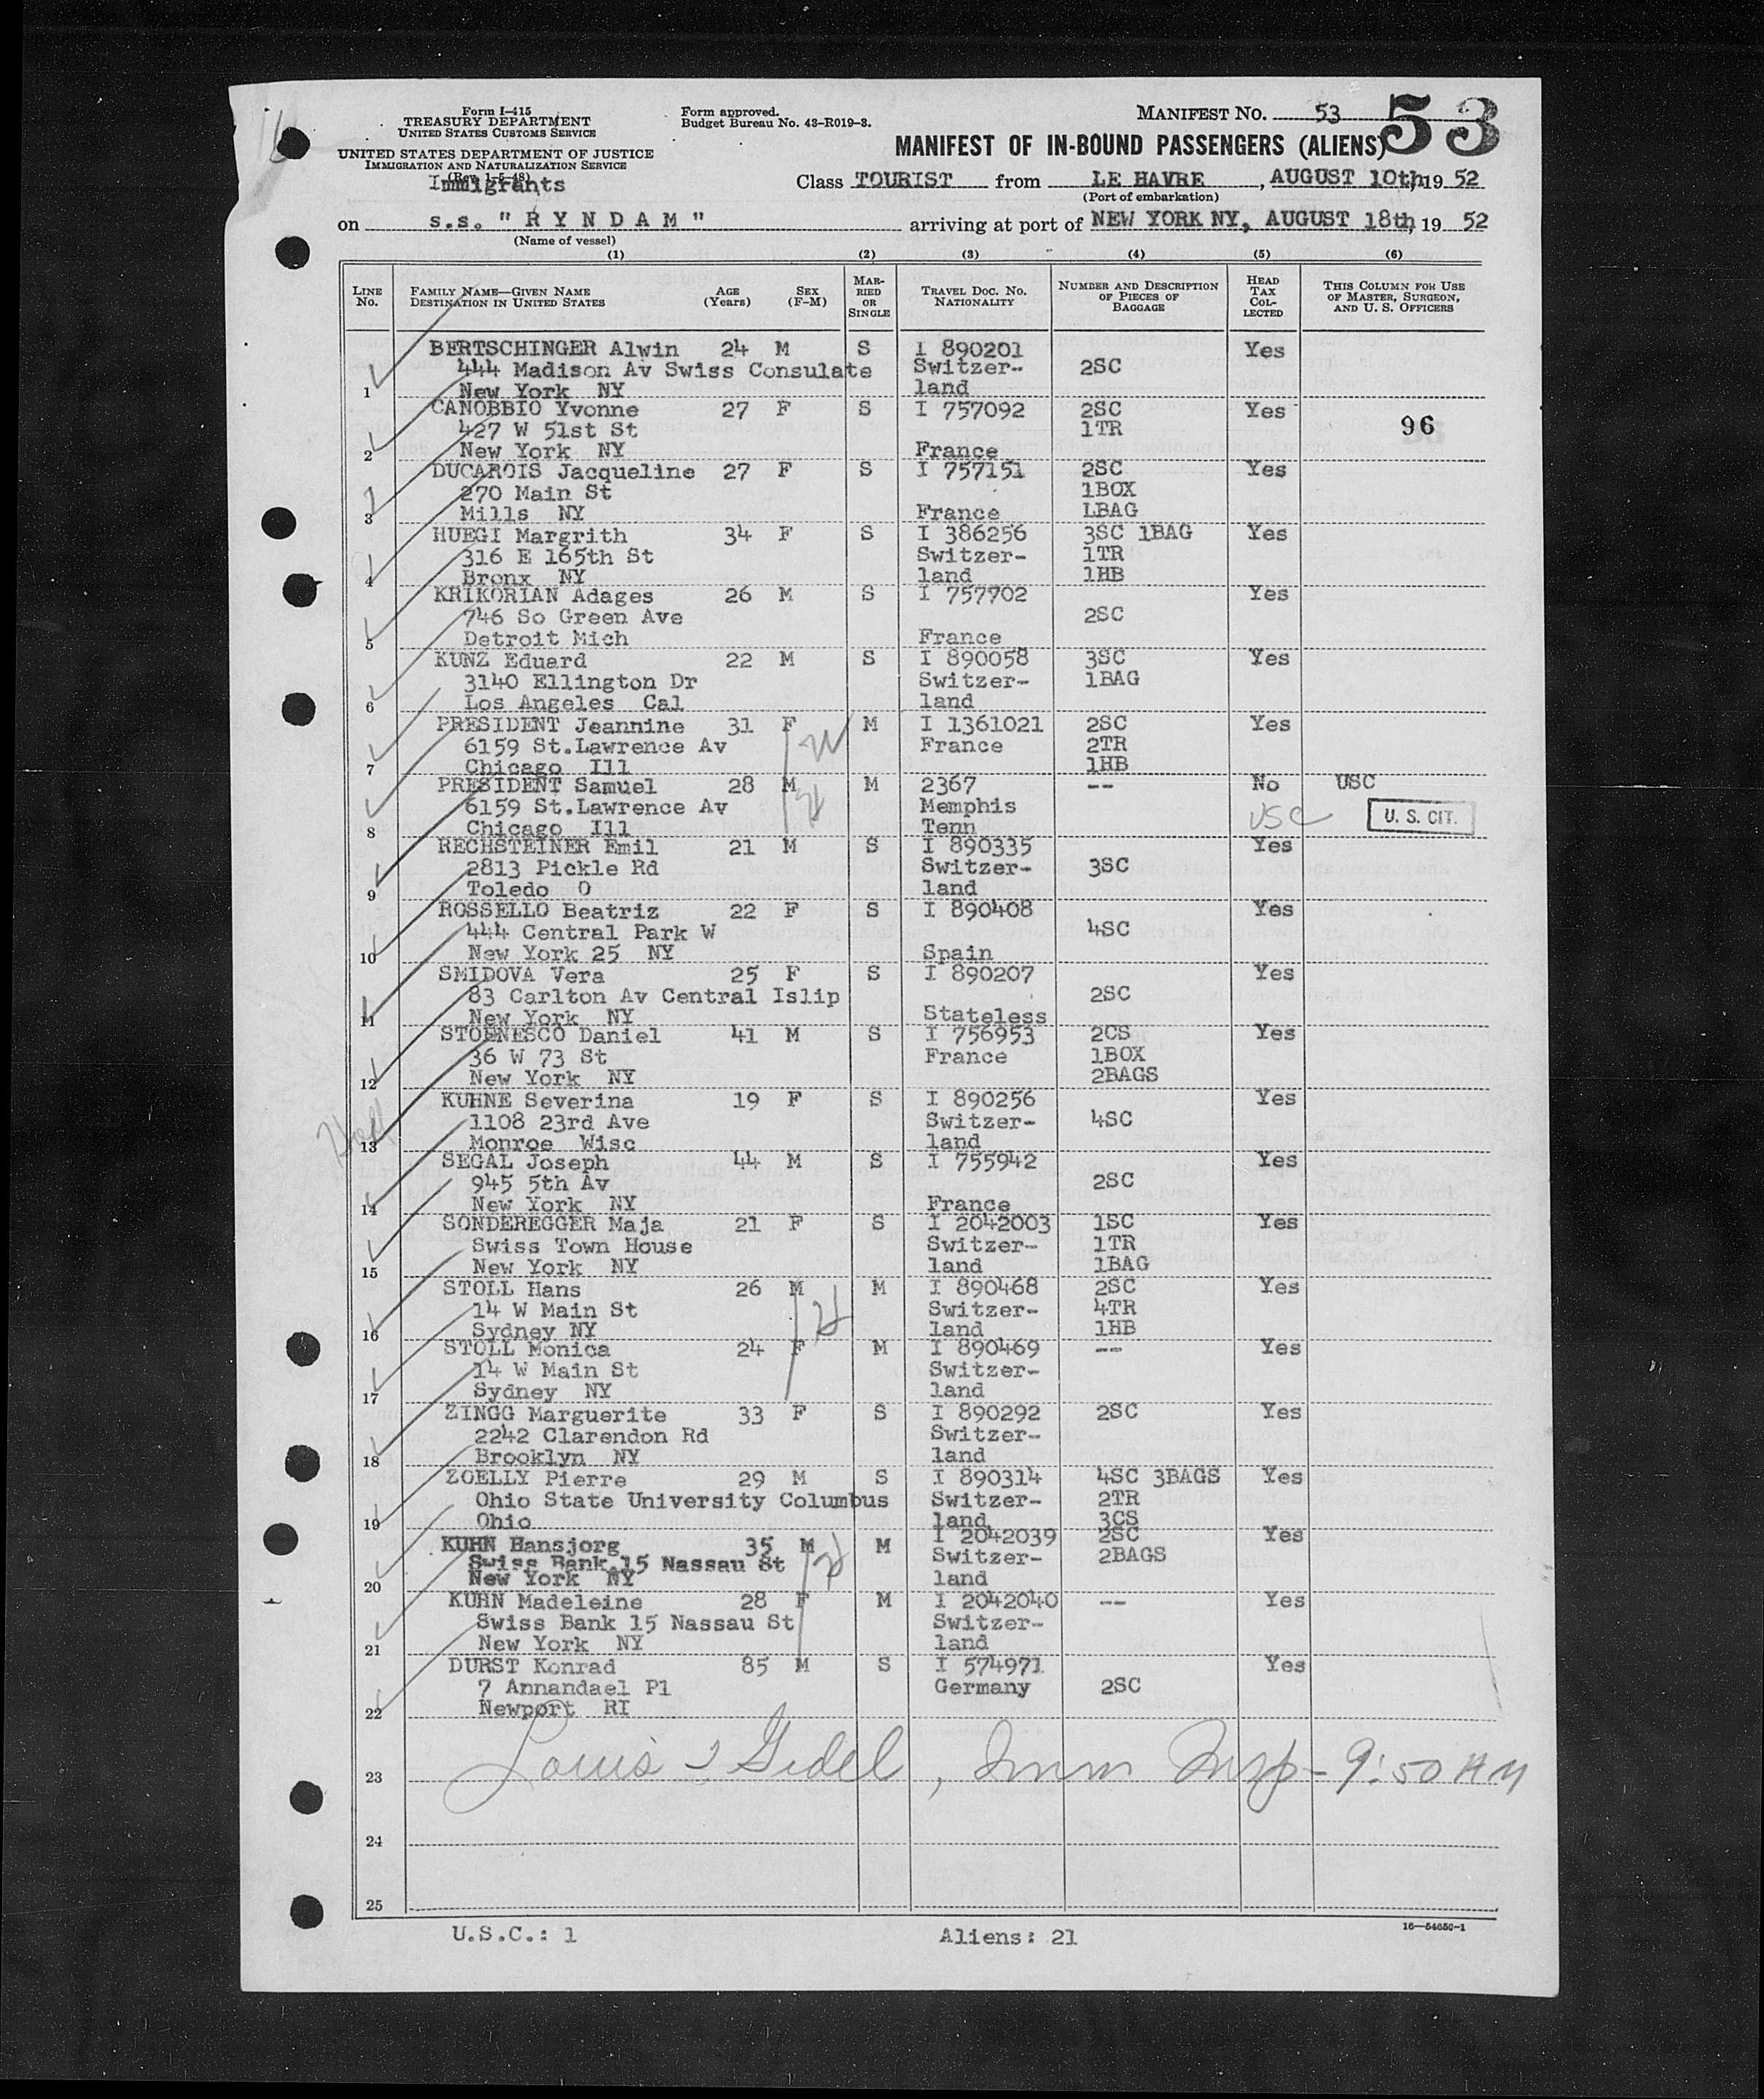 Form I-415
TREASURY DEPARTMENT
UNITED STATES CUSTOMS SERVICE
UNITED STATES DEPARTMENT OF JUSTICE
IMMIGRATION AND NATURALIZATION SERVICE
(Rev. 1-5-48)
Immigrants
Form approved.
Budget Bureau No. 43-R019-3.
MANIFEST NO. 53 53
MANIFEST OF IN-BOUND PASSENGERS (ALIENS)
Class TOURIST from LE HAVRE, AUGUST 10th, 19 52
(Port of embarkation)
on s.s. " R Y N D A M " arriving at port of NEW YORK NY, AUGUST 18th, 19 52
(Name of vessel)
(1) (2) (3) (4) (5) (6)
LINE No. FAMILY NAME—GIVEN NAME DESTINATION IN UNITED STATES AGE (Years) SEX (F-M) MARRIED OR SINGLE TRAVEL DOC. NO. NATIONALITY NUMBER AND DESCRIPTION OF PIECES OF BAGGAGE HEAD TAX COLLECTED THIS COLUMN FOR USE OF MASTER, SURGEON, AND U. S. OFFICERS
BERTSCHINGER Alwin 24 M S I 890201 Yes
444 Madison Av Swiss Consulate Switzer- 2SC
1 New York NY land
CANOBBIO Yvonne 27 F S I 757092 2SC Yes
427 W 51st St 1TR 96
2 New York NY France
DUCAROIS Jacqueline 27 F S I 757151 2SC Yes
270 Main St 1BOX
3 Mills NY France 1BAG
HUEGI Margrith 34 F S I 386256 3SC 1BAG Yes
316 E 165th St Switzer- 1TR
4 Bronx NY land 1HB
KRIKORIAN Adages 26 M S I 757702 Yes
746 So Green Ave 2SC
5 Detroit Mich France
KUNZ Eduard 22 M S I 890058 3SC Yes
3140 Ellington Dr Switzer- 1BAG
6 Los Angeles Cal land
PRESIDENT Jeannine 31 F M I 1361021 2SC Yes
6159 St.Lawrence Av France 2TR
7 Chicago Ill 1HB
PRESIDENT Samuel 28 M M 2367 -- No USC
6159 St.Lawrence Av Memphis USC U. S. CIT.
8 Chicago Ill Tenn
RECHSTEINER Emil 21 M S I 890335 Yes
2813 Pickle Rd Switzer- 3SC
9 Toledo O land
ROSSELLO Beatriz 22 F S I 890408 Yes
444 Central Park W 4SC
10 New York 25 NY Spain
SMIDOVA Vera 25 F S I 890207 Yes
83 Carlton Av Central Islip 2SC
11 New York NY Stateless
STOENESCO Daniel 41 M S I 756953 2CS Yes
36 W 73 St France 1BOX
12 New York NY 2BAGS
KUHNE Severina 19 F S I 890256 Yes
1108 23rd Ave Switzer- 4SC
13 Monroe Wisc land
SEGAL Joseph 44 M S I 755942 Yes
945 5th Av 2SC
14 New York NY France
SONDEREGGER Maja 21 F S I 2042003 1SC Yes
Swiss Town House Switzer- 1TR
15 New York NY land 1BAG
STOLL Hans 26 M M I 890468 2SC Yes
14 W Main St Switzer- 4TR
16 Sydney NY land 1HB
STOLL Monica 24 F M I 890469 -- Yes
14 W Main St Switzer-
17 Sydney NY land
ZINGG Marguerite 33 F S I 890292 2SC Yes
2242 Clarendon Rd Switzer-
18 Brooklyn NY land
ZOELLY Pierre 29 M S I 890314 4SC 3BAGS Yes
Ohio State University Columbus Switzer- 2TR
19 Ohio land 3CS
KUHN Hansjorg 35 M M I 2042039 2SC Yes
Swiss Bank 15 Nassau St Switzer- 2BAGS
20 New York NY land
KUHN Madeleine 28 F M I 2042040 -- Yes
Swiss Bank 15 Nassau St Switzer-
21 New York NY land
DURST Konrad 85 M S I 574971 Yes
7 Annandael Pl Germany 2SC
22 Newport RI
23 Louis J Gidel, Imm Insp - 9:50 AM
24
25
U.S.C.: 1 Aliens: 21 16—54650-1